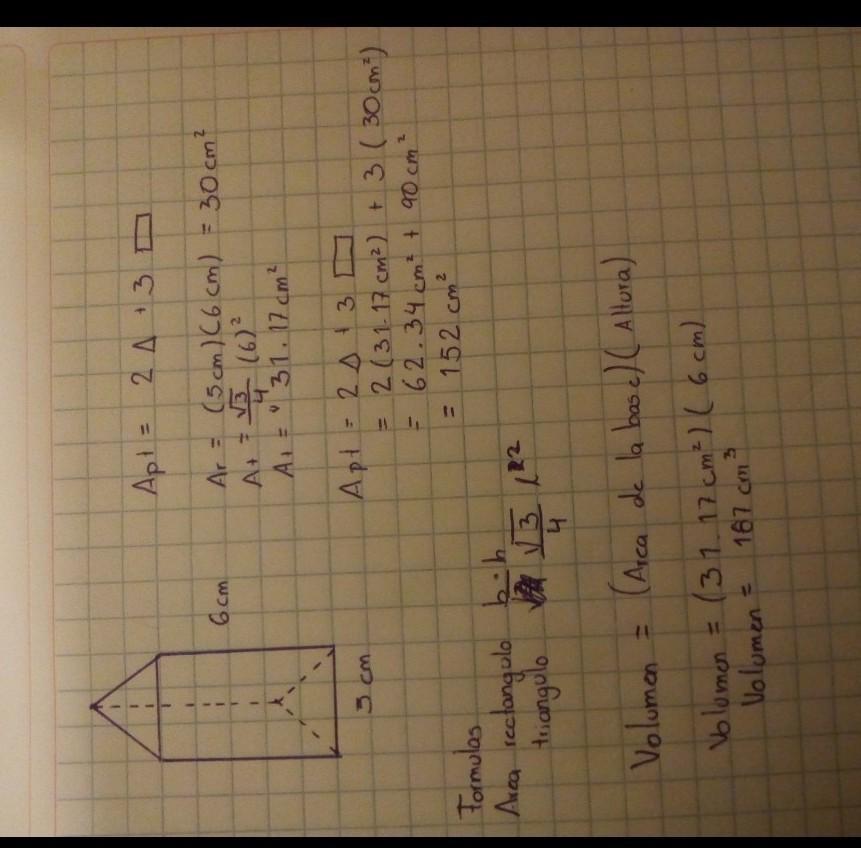 6cm
5 cm
Apt = 2 Δ + 3 ▭
Ar = (5cm)(6cm) = 30cm²
At = √3/4 (6)²
At = " 31.17cm²
Apt = 2 Δ + 3 ▭
= 2(31.17cm²) + 3 (30cm²)
= 62.34cm² + 90cm²
= 152 cm²
Formulas
Area rectangulo b·h
triangulo √3/4 l²
Volumen = (Area de la base)(Altura)
Volumen = (31.17cm²)(6cm)
Volumen = 187 cm³